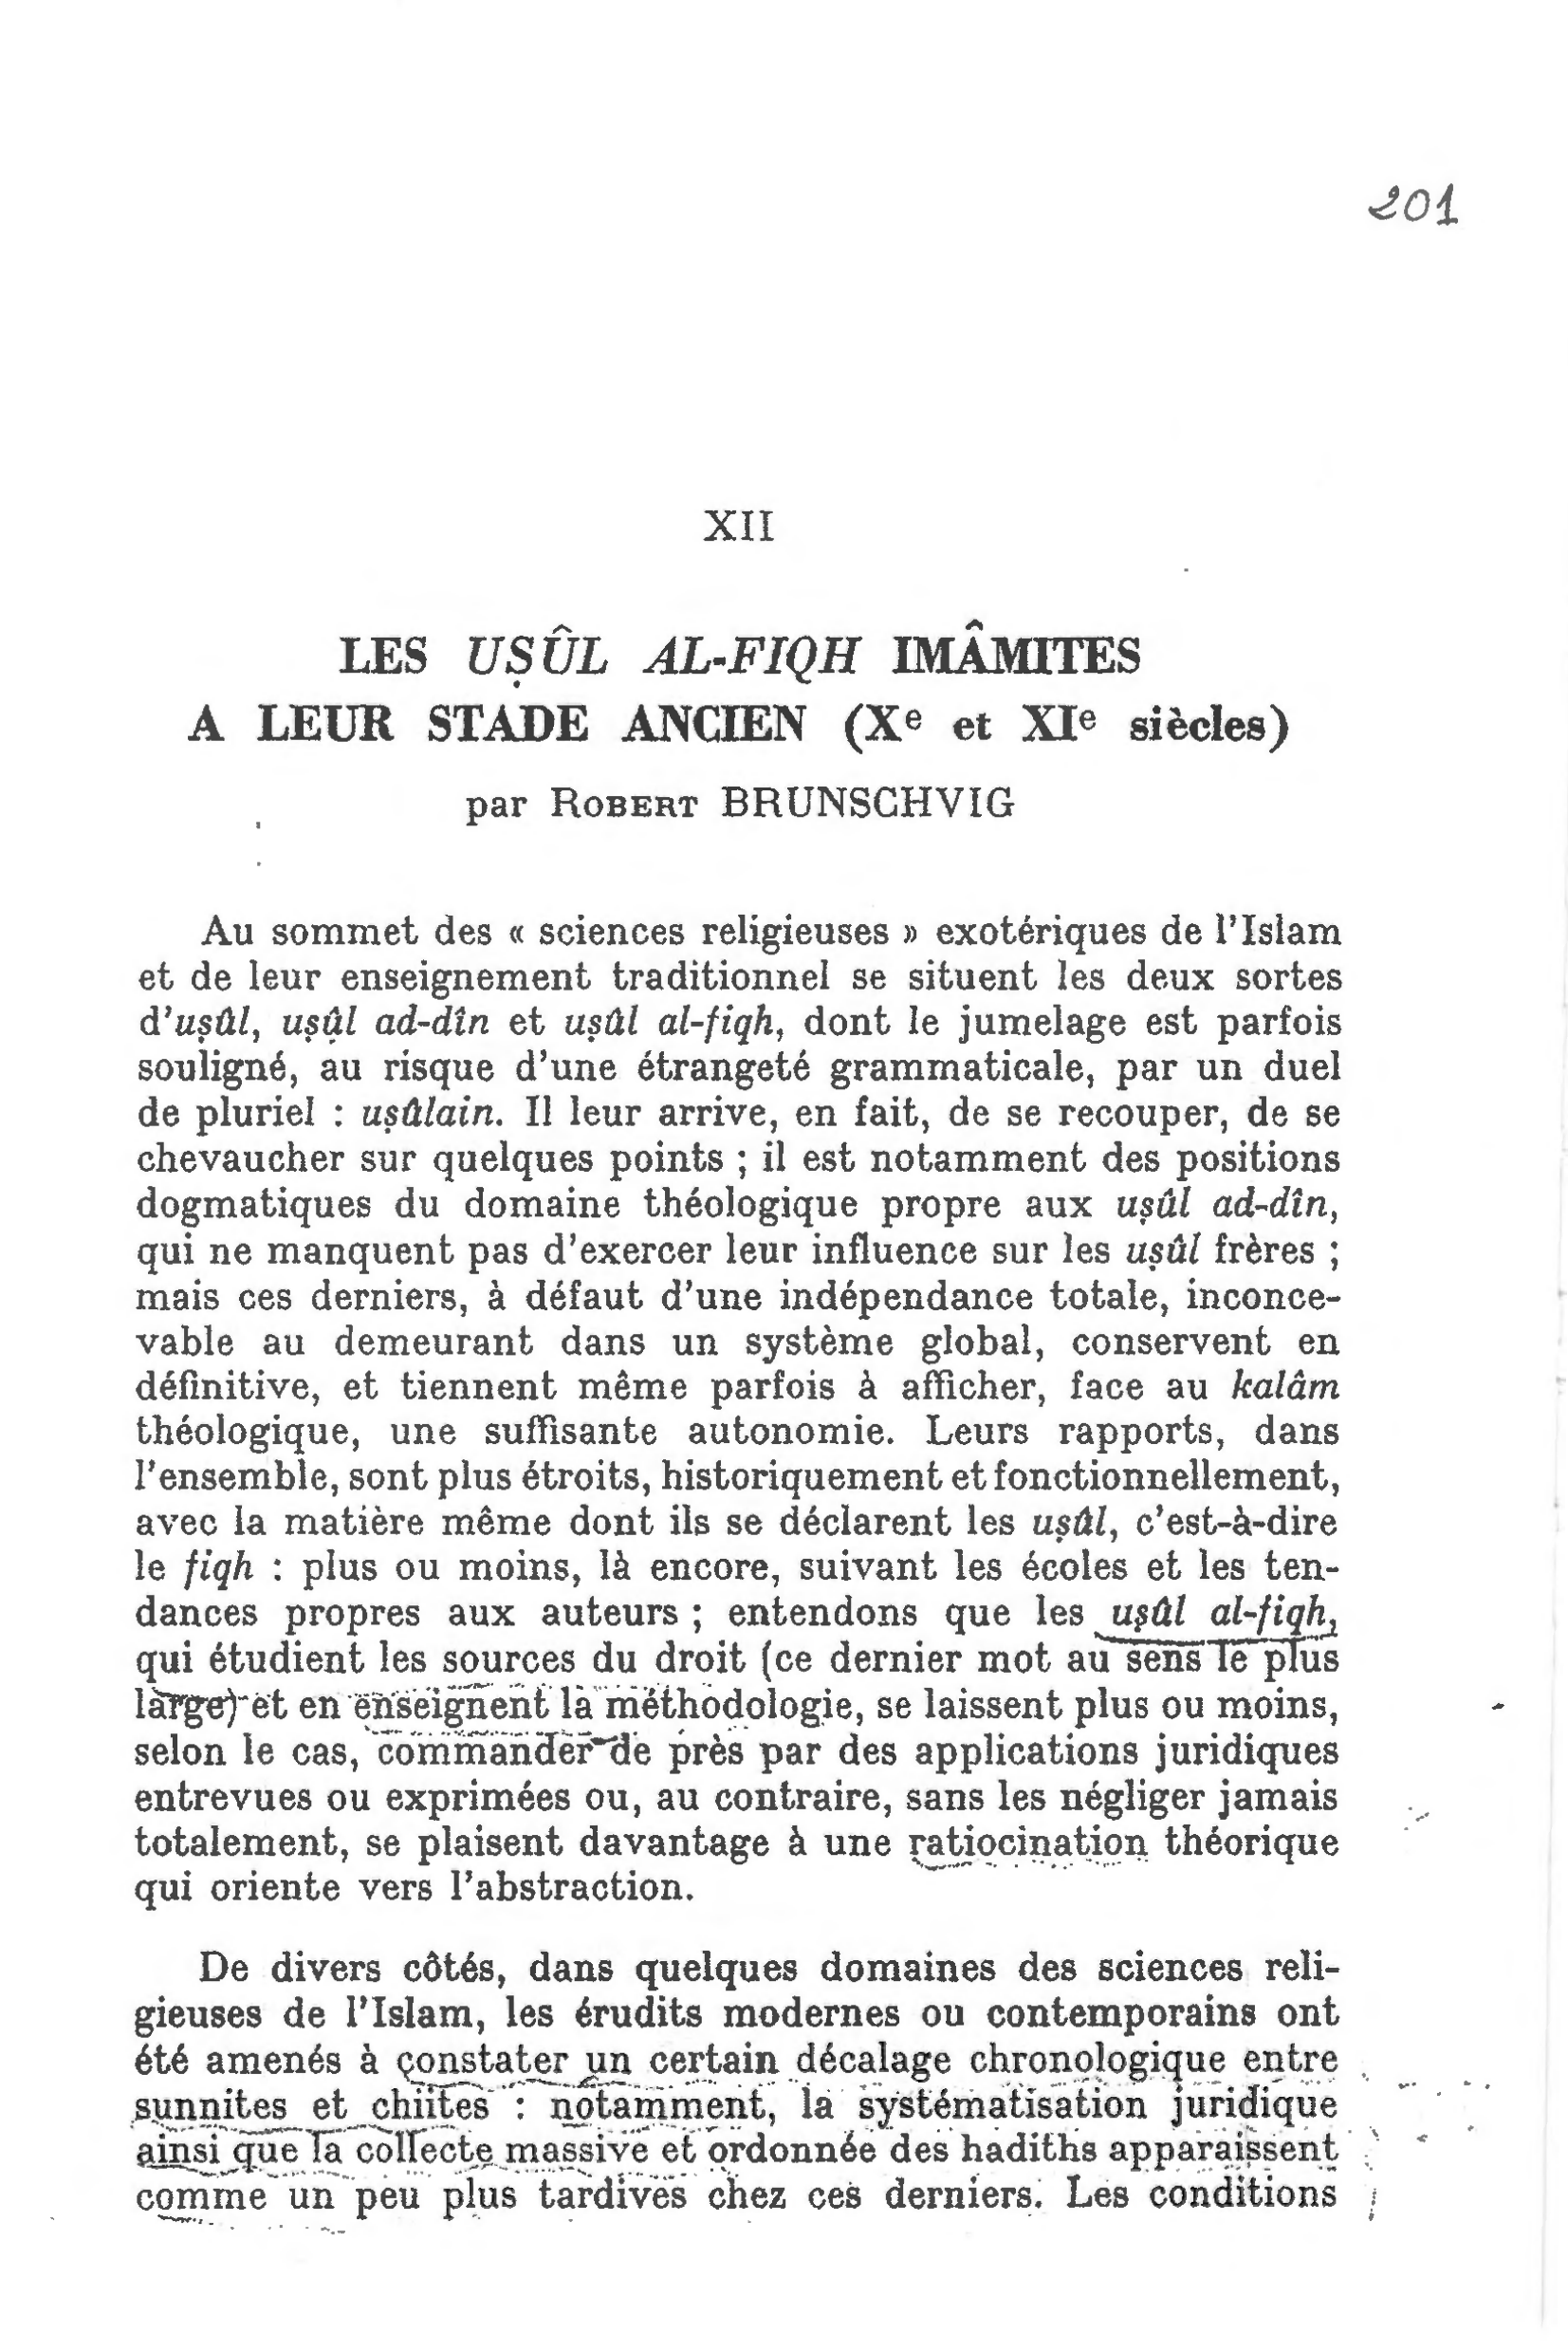 201
XII
LES UṢÛL AL-FIQH IMÂMITES
A LEUR STADE ANCIEN (Xe et XIe siècles)
par ROBERT BRUNSCHVIG
Au sommet des « sciences religieuses » exotériques de l'Islam
et de leur enseignement traditionnel se situent les deux sortes
d'uṣûl, uṣûl ad-dîn et uṣûl al-fiqh, dont le jumelage est parfois
souligné, au risque d'une étrangeté grammaticale, par un duel
de pluriel : uṣûlain. Il leur arrive, en fait, de se recouper, de se
chevaucher sur quelques points ; il est notamment des positions
dogmatiques du domaine théologique propre aux uṣûl ad-dîn,
qui ne manquent pas d'exercer leur influence sur les uṣûl frères ;
mais ces derniers, à défaut d'une indépendance totale, inconce-
vable au demeurant dans un système global, conservent en
définitive, et tiennent même parfois à afficher, face au kalâm
théologique, une suffisante autonomie. Leurs rapports, dans
l'ensemble, sont plus étroits, historiquement et fonctionnellement,
avec la matière même dont ils se déclarent les uṣûl, c'est-à-dire
le fiqh : plus ou moins, là encore, suivant les écoles et les ten-
dances propres aux auteurs ; entendons que les uṣûl al-fiqh,
qui étudient les sources du droit (ce dernier mot au sens le plus
large) et en enseignent la méthodologie, se laissent plus ou moins,
selon le cas, commander de près par des applications juridiques
entrevues ou exprimées ou, au contraire, sans les négliger jamais
totalement, se plaisent davantage à une ratiocination théorique
qui oriente vers l'abstraction.
De divers côtés, dans quelques domaines des sciences reli-
gieuses de l'Islam, les érudits modernes ou contemporains ont
été amenés à constater un certain décalage chronologique entre
sunnites et chiites : notamment, la systématisation juridique
ainsi que la collecte massive et ordonnée des hadiths apparaissent
comme un peu plus tardives chez ces derniers. Les conditions